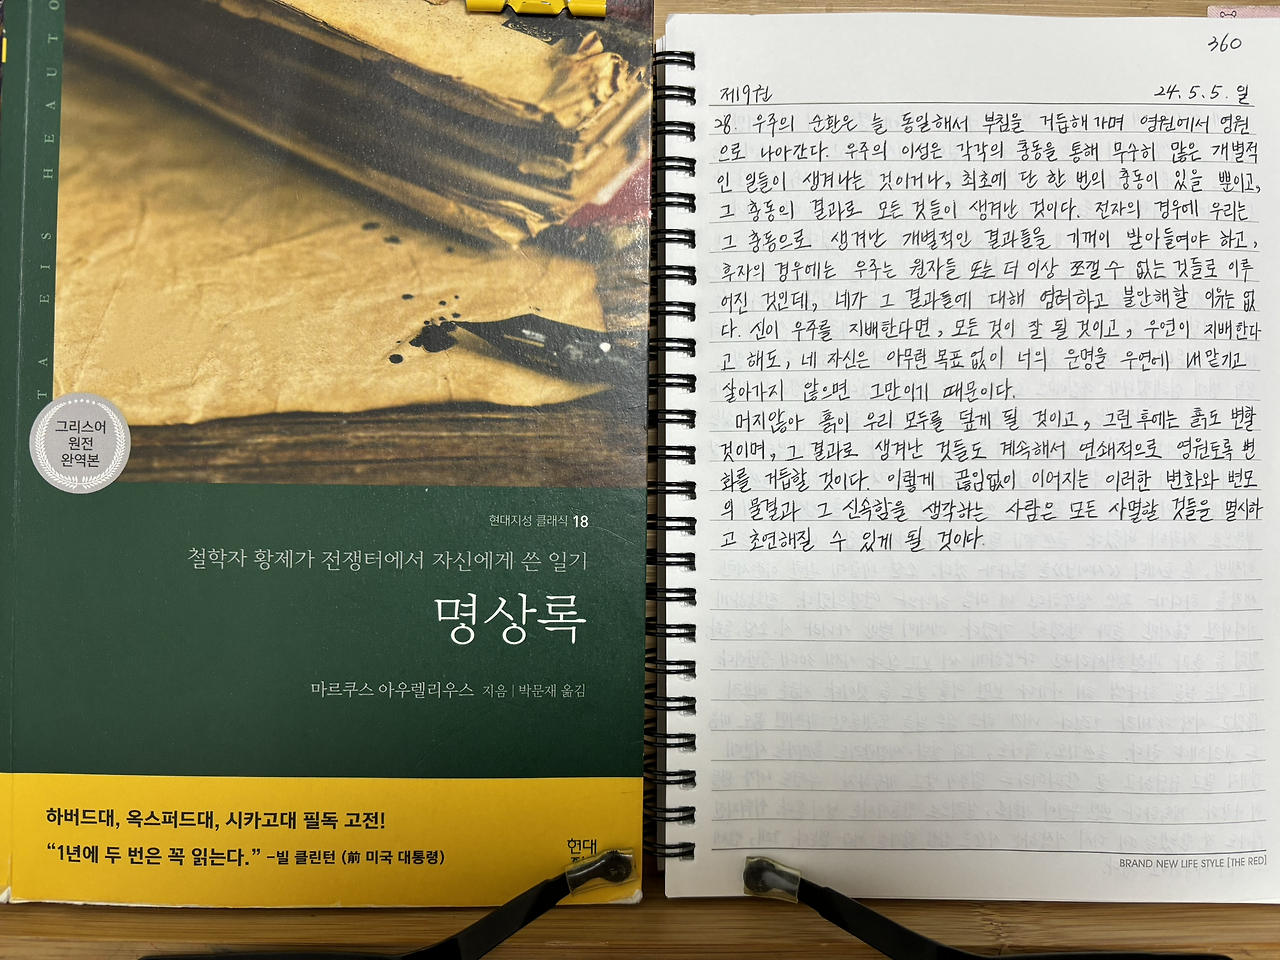 TA EIS HEAUTO
그리스어
원전
완역본
현대지성 클래식 18
철학자 황제가 전쟁터에서 자신에게 쓴 일기
명상록
마르쿠스 아우렐리우스 지음 | 박문재 옮김
하버드대, 옥스퍼드대, 시카고대 필독 고전!
“1년에 두 번은 꼭 읽는다.” –빌 클린턴 (前 미국 대통령)
현대
360
제9권 24. 5. 5. 일
28. 우주의 순환은 늘 동일해서 부침을 거듭해가며 영원에서 영원
으로 나아간다. 우주의 이성은 각각의 충동을 통해 무수히 많은 개별적
인 일들이 생겨나는 것이거나, 최초에 단 한 번의 충동이 있을 뿐이고,
그 충동의 결과로 모든 것들이 생겨난 것이다. 전자의 경우에 우리는
그 충동으로 생겨난 개별적인 결과들을 기꺼이 받아들여야 하고,
후자의 경우에는 우주는 원자들 또는 더 이상 쪼갤 수 없는 것들로 이루
어진 것인데, 네가 그 결과들에 대해 염려하고 불안해할 이유는 없
다. 신이 우주를 지배한다면, 모든 것이 잘 될 것이고, 우연이 지배한다
고 해도, 네 자신은 아무런 목표 없이 너의 운명을 우연에 내맡기고
살아가지 않으면 그만이기 때문이다.
머지않아 흙이 우리 모두를 덮게 될 것이고, 그런 후에는 흙도 변할
것이며, 그 결과로 생겨난 것들도 계속해서 연쇄적으로 영원토록 변
화를 거듭할 것이다. 이렇게 끊임없이 이어지는 이러한 변화와 변모
의 물결과 그 신속함을 생각하는 사람은 모든 사멸할 것들을 멸시하
고 초연해질 수 있게 될 것이다.
BRAND NEW LIFE STYLE [THE RED]